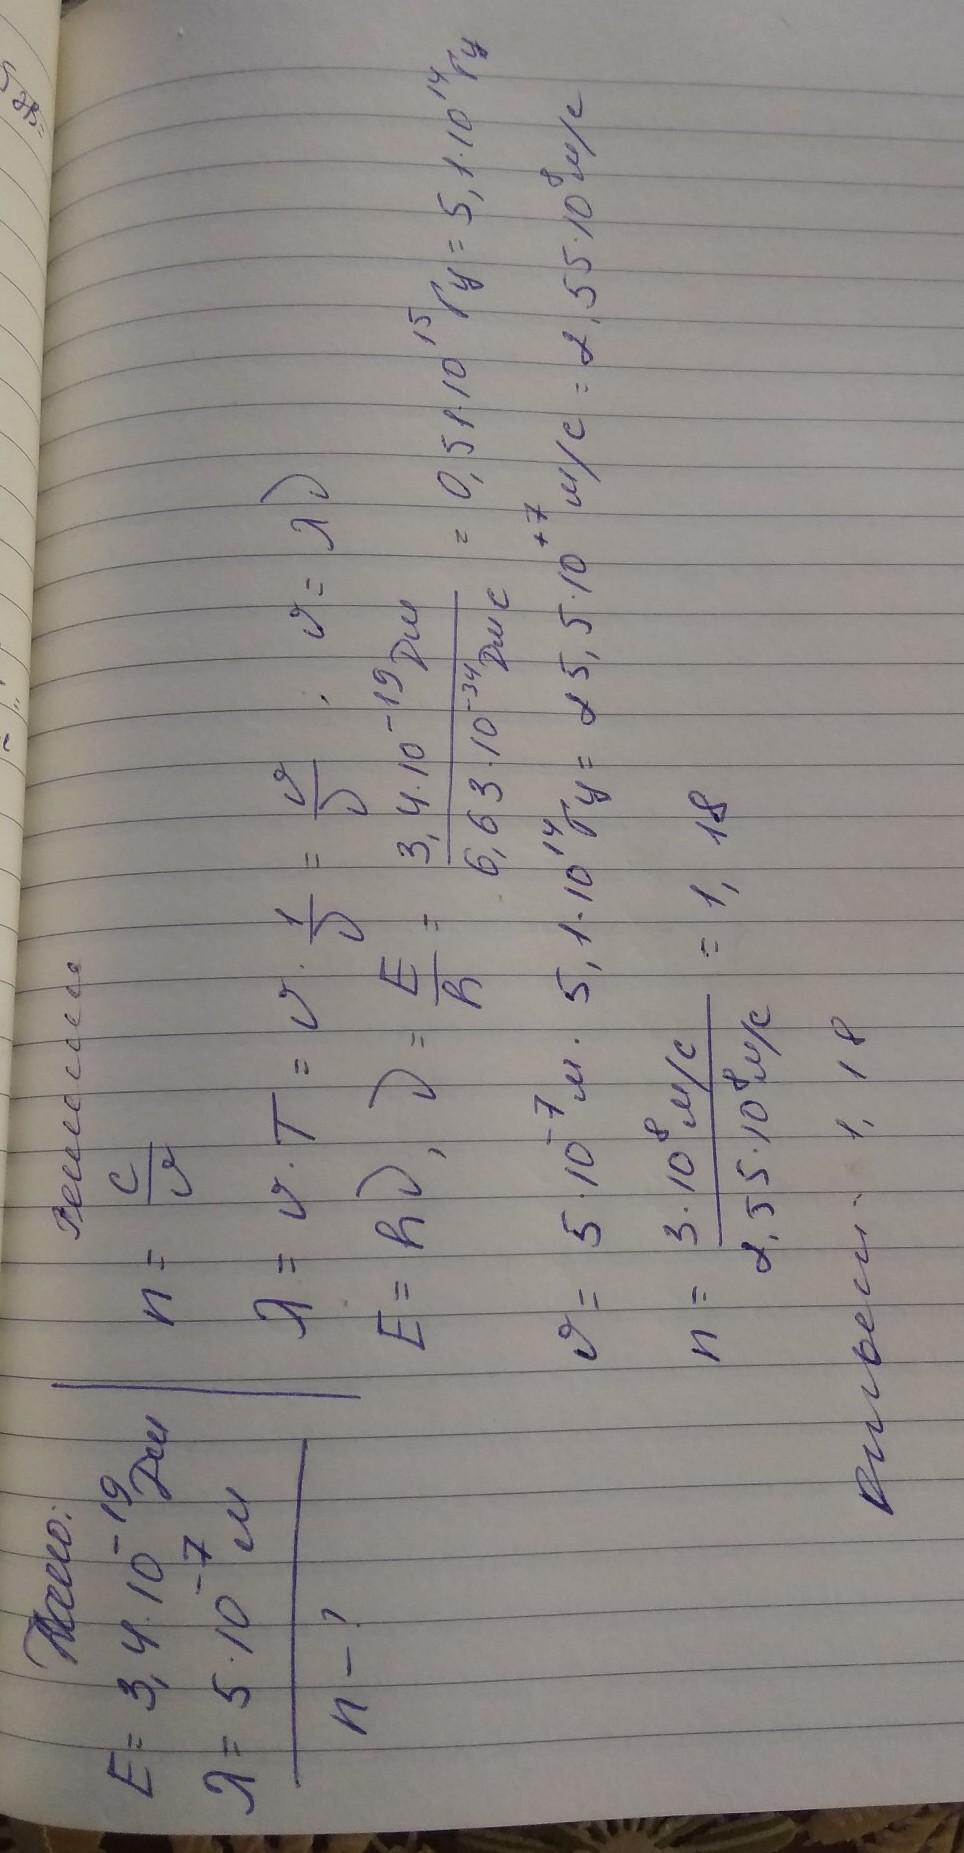 Дано:
E = 3,4·10⁻¹⁹ Дж
λ = 5·10⁻⁷ м
n – ?
Решение
n = c/υ
λ = υ·T = υ·1/ν = υ/ν, υ = λν
E = hν, ν = E/h = 3,4·10⁻¹⁹ Дж / 6,63·10⁻³⁴ Дж с = 0,51·10¹⁵ Гц = 5,1·10¹⁴ Гц
υ = 5·10⁻⁷ м · 5,1·10¹⁴ Гц = 25,5·10⁺⁷ м/с = 2,55·10⁸ м/с
n = 3·10⁸ м/с / 2,55·10⁸ м/с = 1,18
Ответ: 1,18